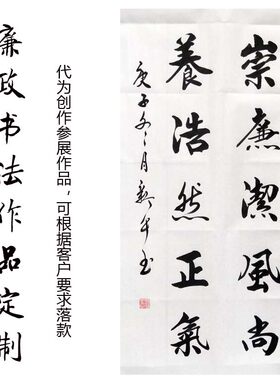 廉政书法作品定制
代为创作参展作品，可根据客户要求落款
崇廉潔風尚
養浩然正氣
庚子冬月新年书